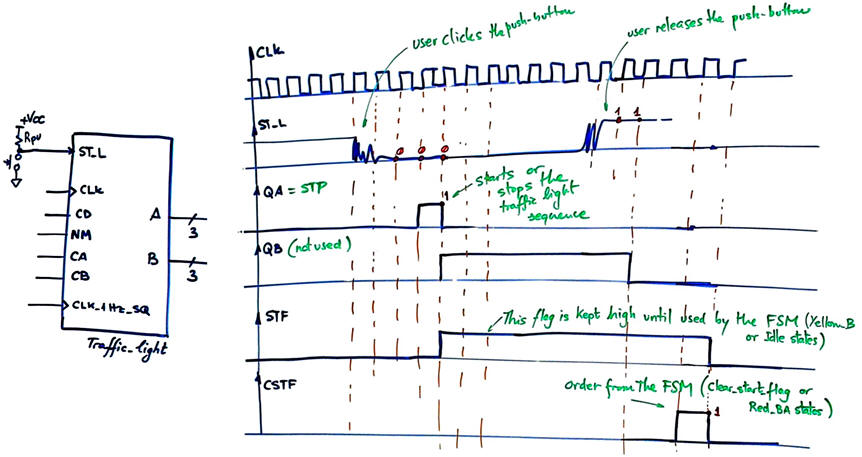 +Vcc
Rpu
ST_L
CLK
CD
NM
CA
CB
CLK_1Hz_SQ
A
3
B
3
Traffic_light
CLK
user clicks the push-button
user releases the push-button
ST_L
0 0 0
1 1
QA = STP
1
starts or
stops the
traffic light
sequence
QB (not used)
STF
This flag is kept high until used by the FSM (Yellow_B
or Idle states)
CSTF
Order from The FSM (Clear_start_flag or
Red_BA states)
1